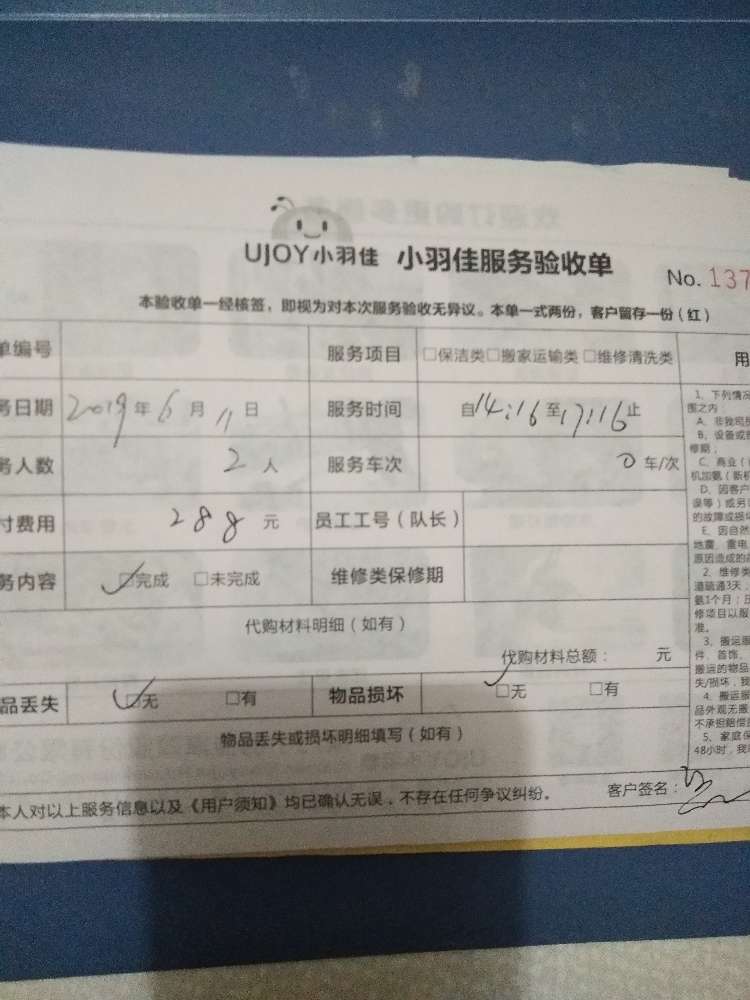 UJOY小羽佳 小羽佳服务验收单
No. 137
本验收单一经核签，即视为对本次服务验收无异议。本单一式两份，客户留存一份（红）
单编号 服务项目 □保洁类□搬家运输类 □维修清洗类 用
务日期 2019年6月11日 服务时间 自14:16至17:16止
务人数 2人 服务车次 0车/次
付费用 288元 员工工号（队长）
务内容 ☑完成 □未完成 维修类保修期
代购材料明细（如有）
代购材料总额： 元
品丢失 ☑无 □有 物品损坏 ☑无 □有
物品丢失或损坏明细填写（如有）
本人对以上服务信息以及《用户须知》均已确认无误，不存在任何争议纠纷。 客户签名：
1、下列情况
围之内：
A、非我司
B、设备或
修期；
C、商业（
机加氨（新机
D、因客户
误等）或另
的故障或损坏
E、因自然
地震、雷电
原因造成的
2、维修类
道疏通3天，
氨1个月；
修项目以服
准。
3、搬运服
件、首饰、
搬运的物品
失/损坏，我
4、搬运服
品外观无
不承担赔偿
5、家庭保
48小时，我